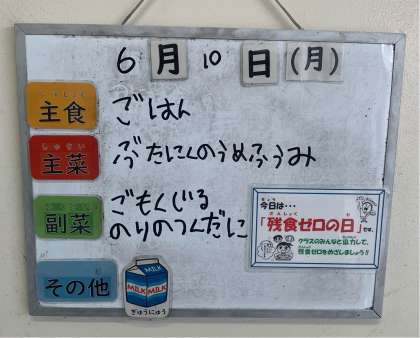 6月10日(月)
主食
ごはん
主菜
ぶたにくのうめふうみ
副菜
ごもくじる
のりのつくだに
今日は…
「残食ゼロの日」です。
クラスのみんなと協力して、
残食ゼロをめざしましょう!!
その他
MILK MILK
MILK MILK
ぎゅうにゅう